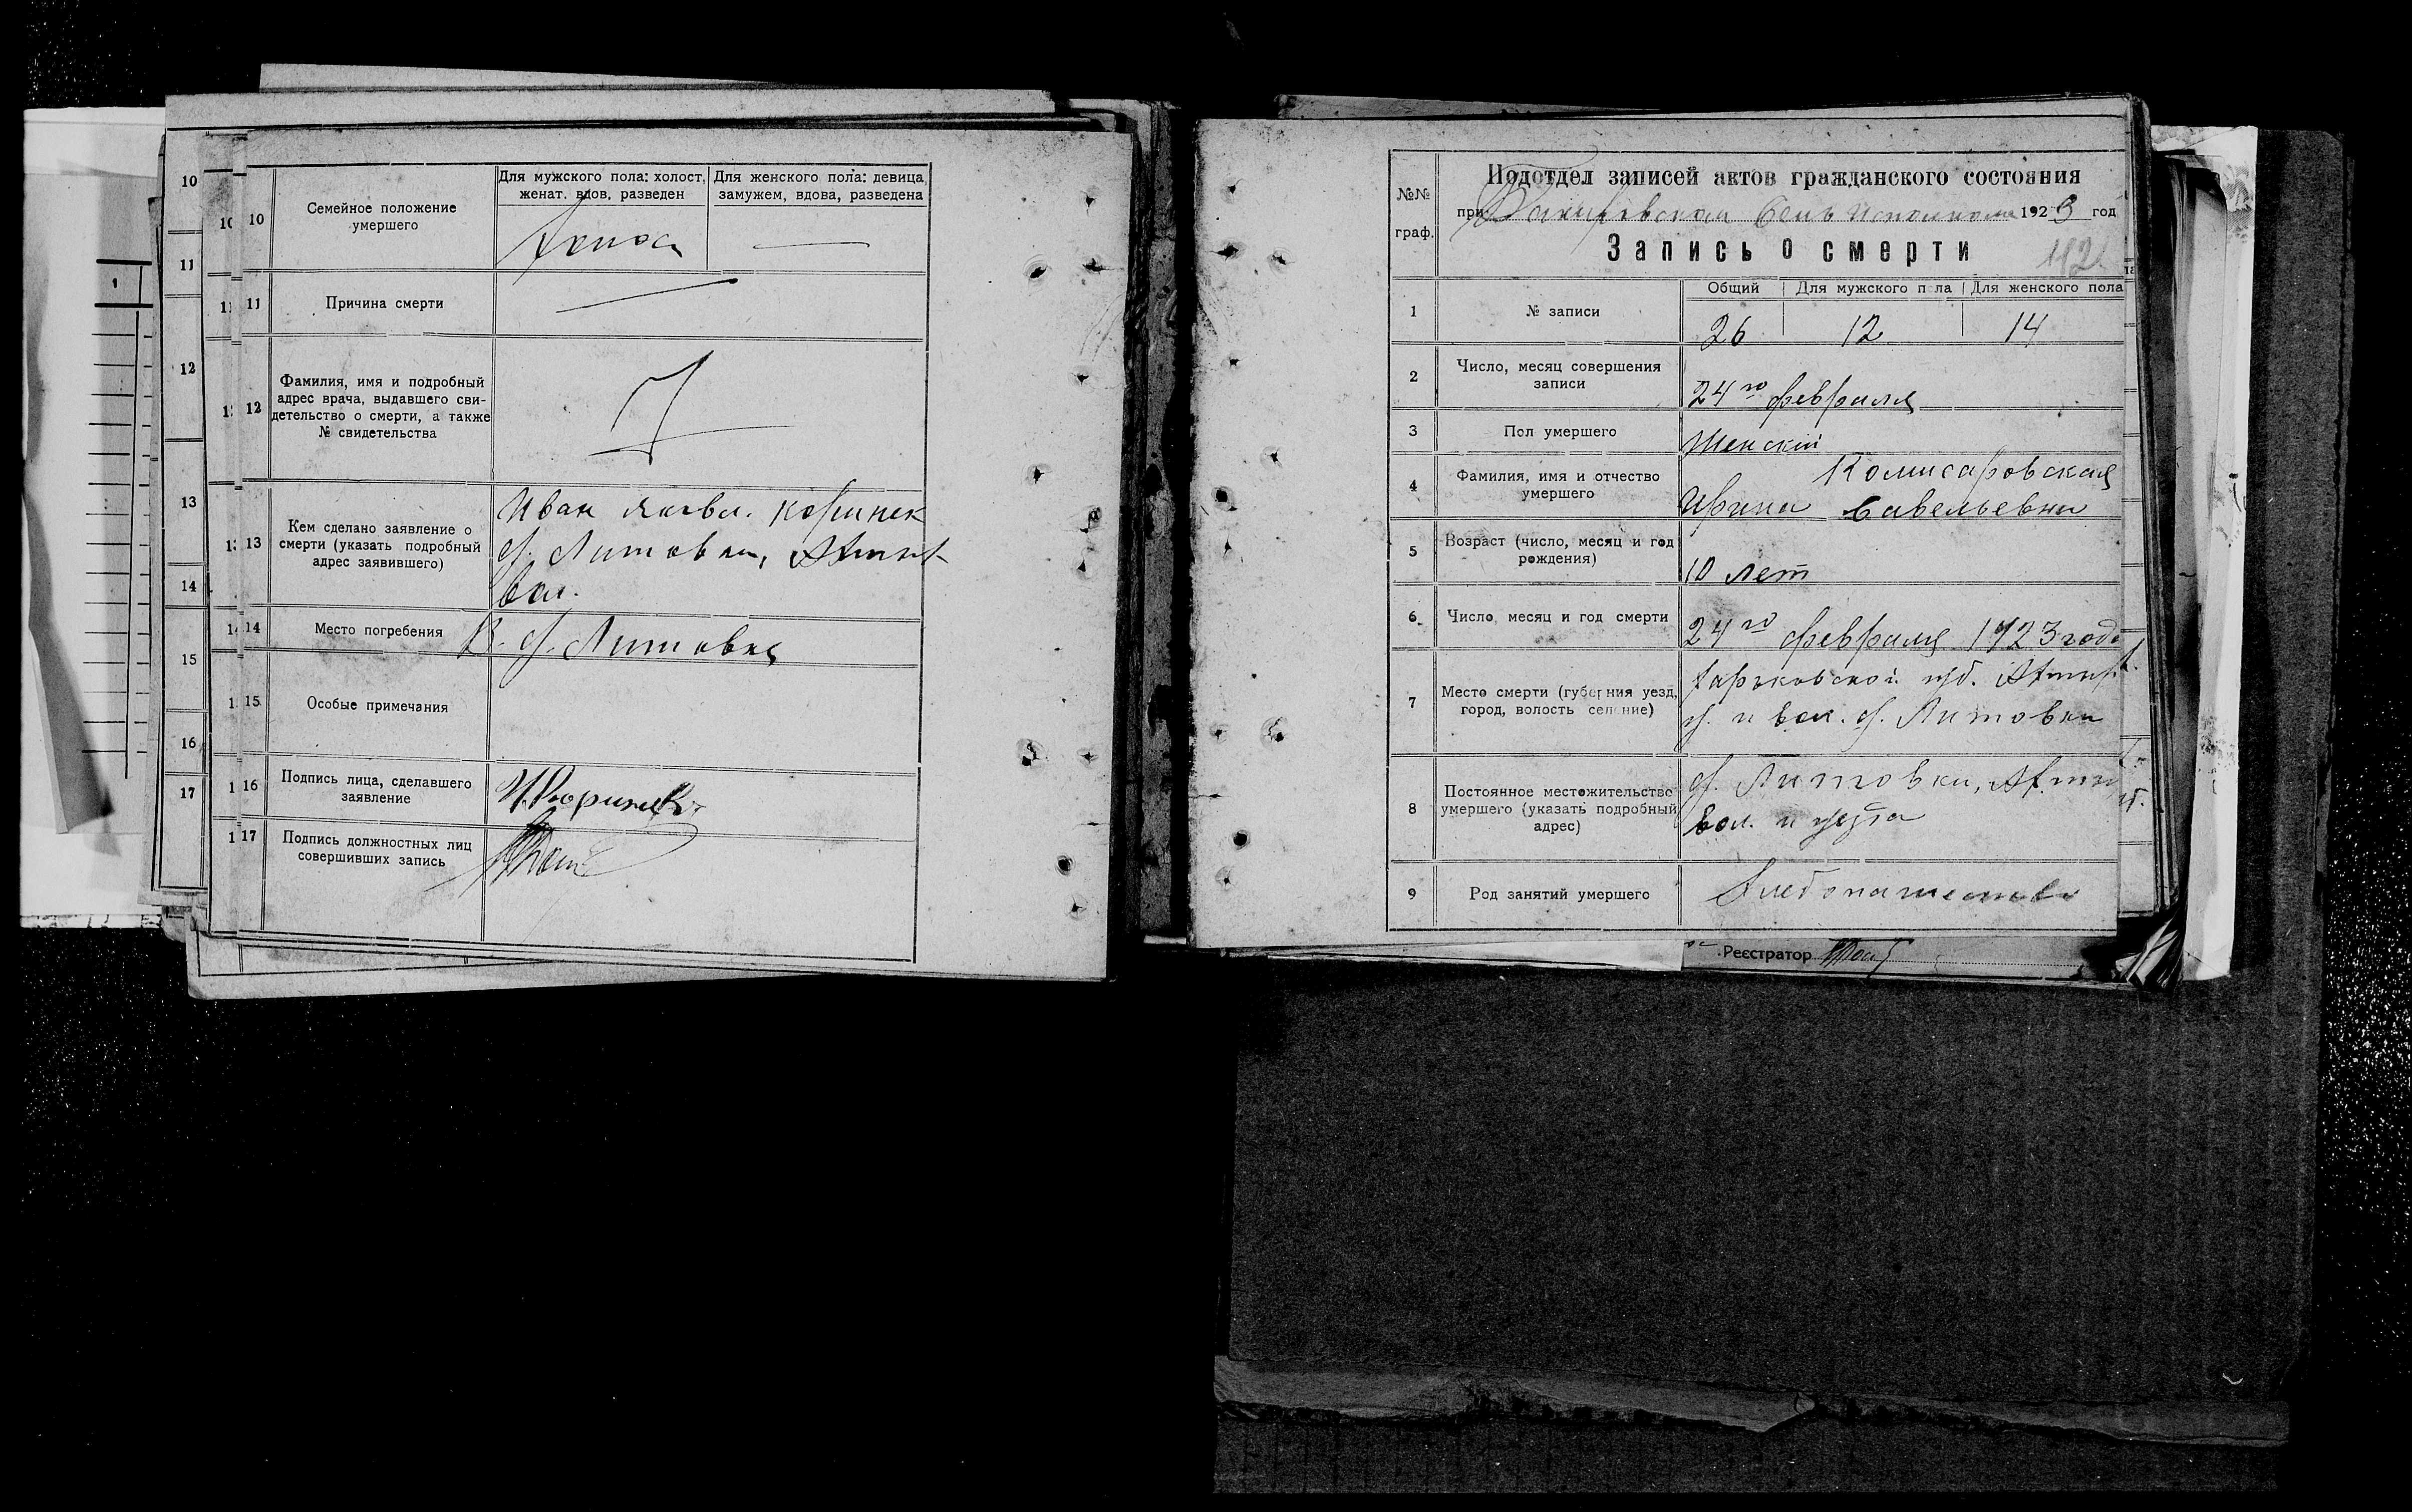 10
11
12
13
14
15
16
17
10
Семейное положение
умершего
Для мужского пола: холост,
женат. вдов, разведен
Для женского пола: девица,
замужем, вдова, разведена
Холост
—
11
Причина смерти
12
Фамилия, имя и подробный
адрес врача, выдавшего сви-
детельство о смерти, а также
№ свидетельства
13
Кем сделано заявление о
смерти (указать подробный
адрес заявившего)
Иван Яковл. Коринек
х. Литовки, Ахтыр
вол.
14
Место погребения
В х. Литовке
15
Особые примечания
16
Подпись лица, сделавшего
заявление
И Коринек
17
Подпись должностных лиц
совершивших запись
№№
граф.
Подотдел записей актов гражданского состояния
при 1923 год
Запись о смерти
42
1
№ записи
Общий
Для мужского пола
Для женского пола
26
12
14
2
Число, месяц совершения
записи
24го февраля
3
Пол умершего
Женский
4
Фамилия, имя и отчество
умершего
Комисаровская
Ирина Савельевна
5
Возраст (число, месяц и год
рождения)
10 лет
6
Число, месяц и год смерти
24го февраля 1923 года
7
Место смерти (губерния уезд,
город, волость селение)
Харьковской губ. Ахтыр
у. и вол. х. Литовки
8
Постоянное местожительство
умершего (указать подробный
адрес)
х. Литовки, Ахтыр
вол. и уезда
9
Род занятий умершего
Хлебопашество
Реєстратор